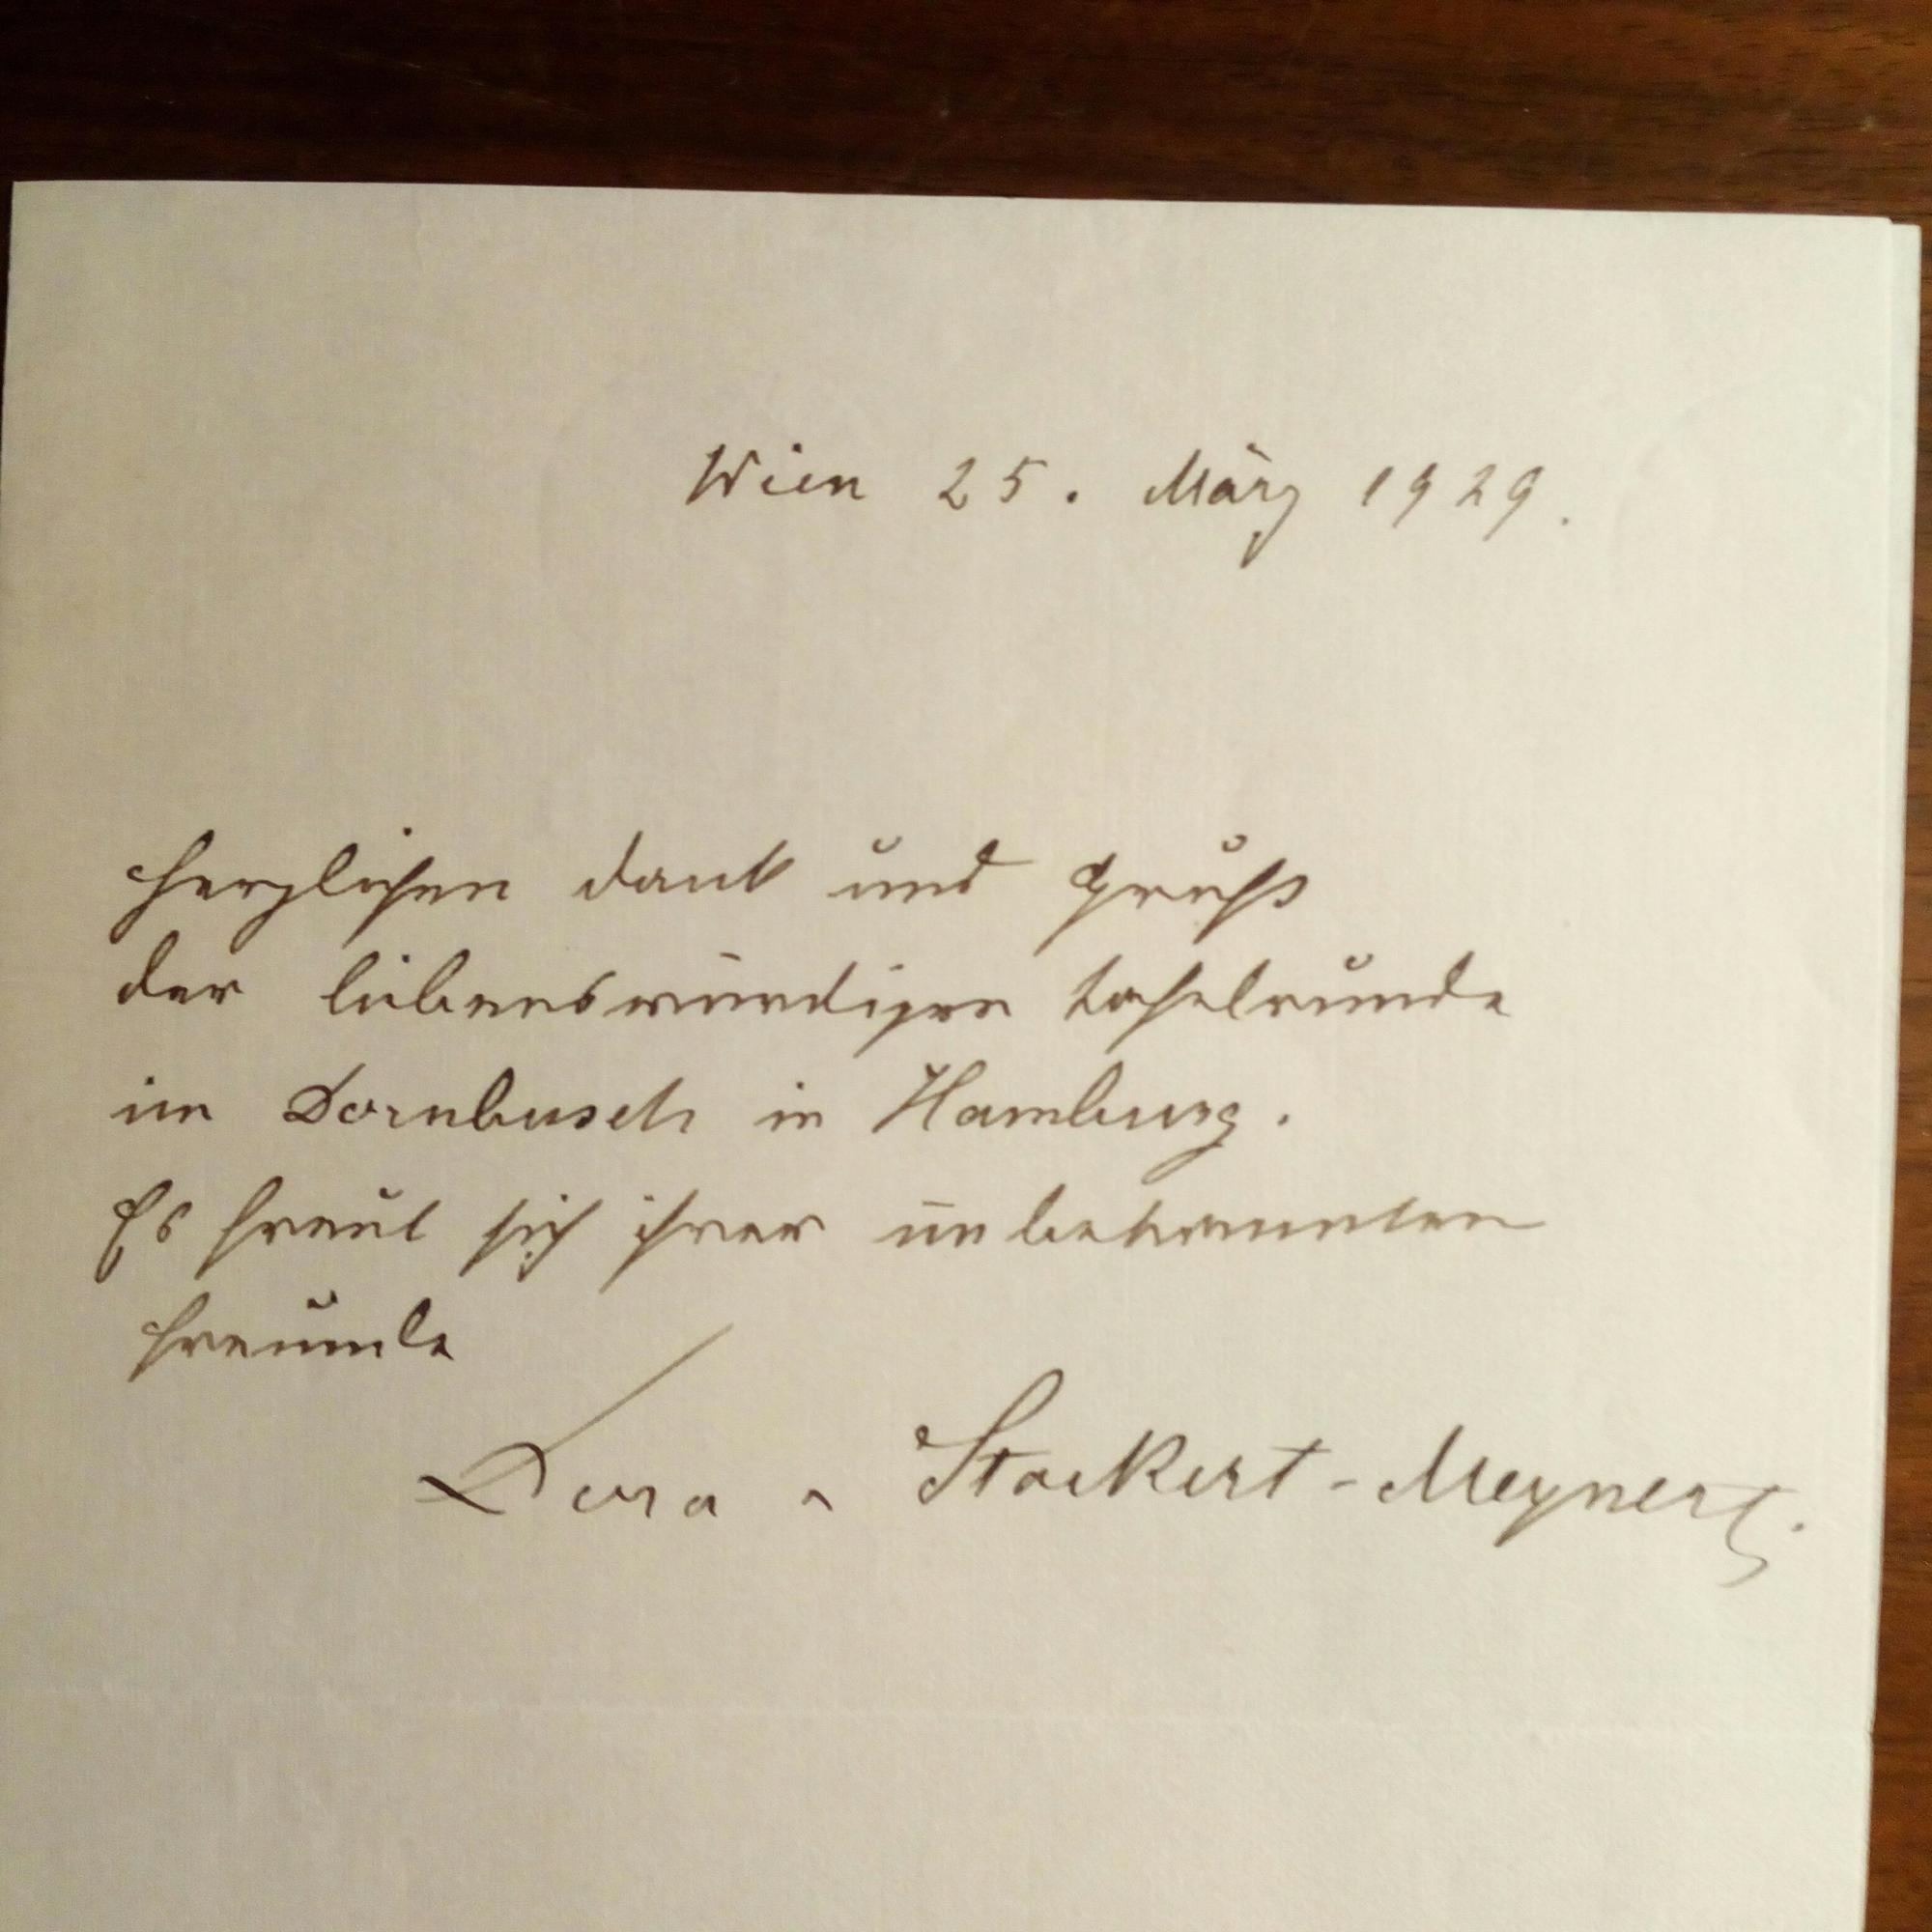 Wien 25. März 1929.
Herzlichen Dank und Gruß
der liebenswürdigen Tafelrunde
im Dornbusch in Hamburg.
Es freut sich ihrer unbekannten
Freunde
Dora v Stockert-Meynert.